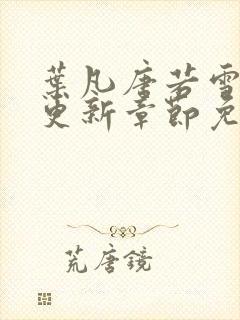 葉凡唐若雪
更新章節免
荒唐鏡